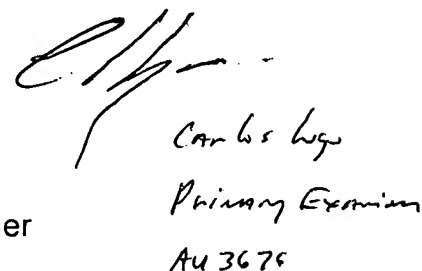 Carlos Lugo
Primary Examiner
er
AU 3676